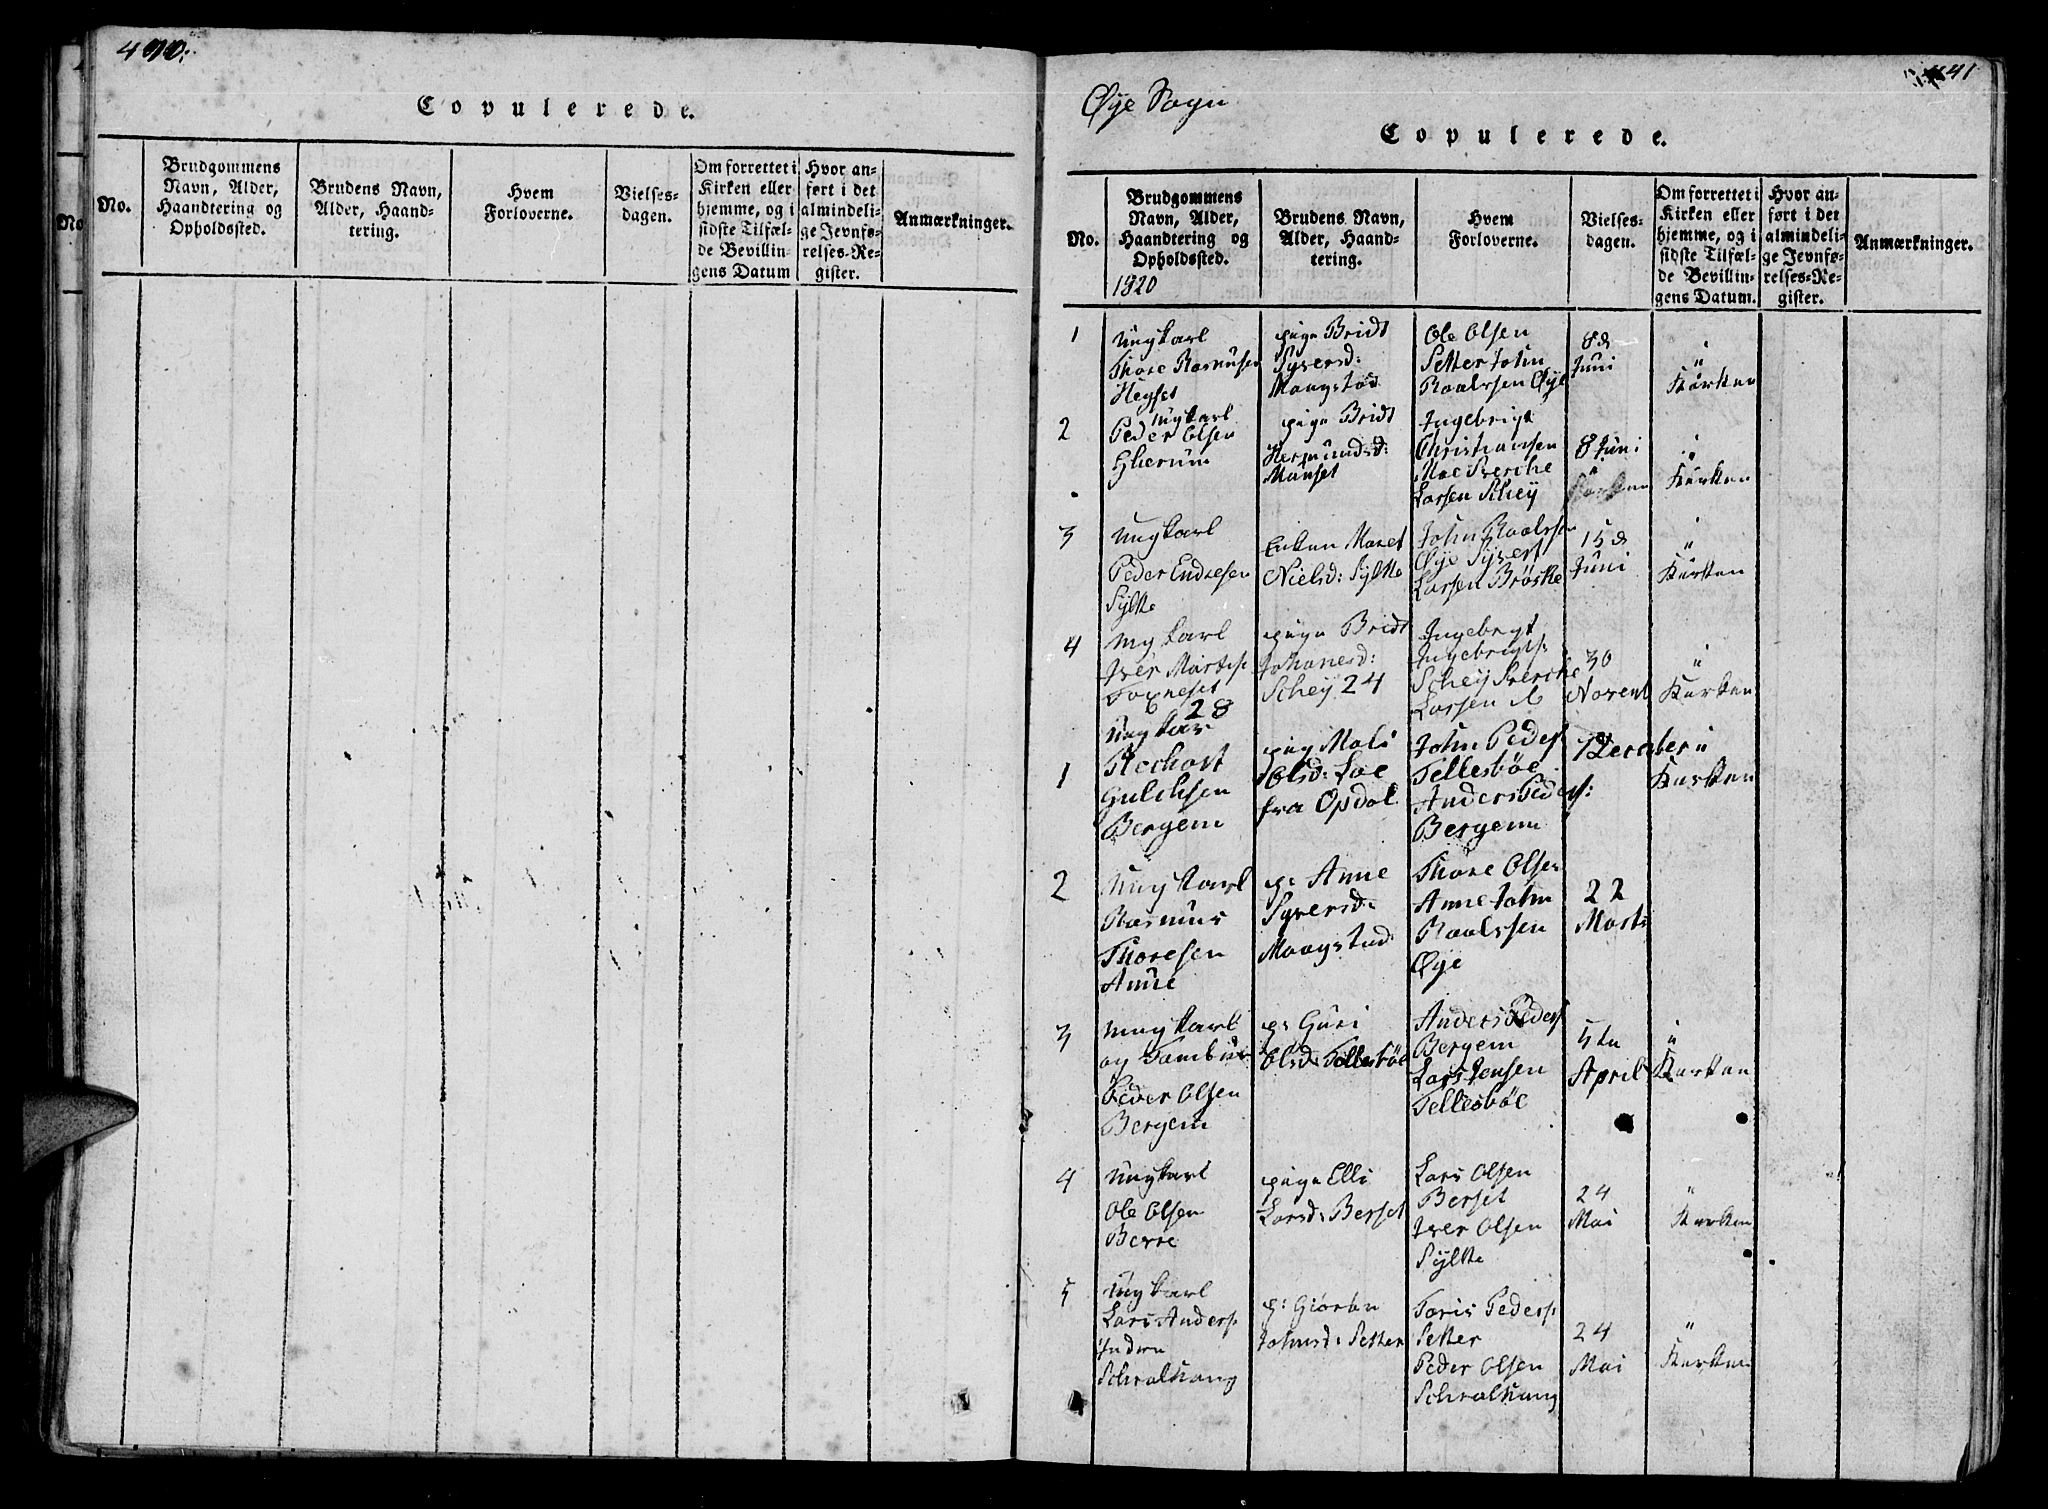 440.
Copulerede.
No.
Brudgommens Navn, Alder, Haandtering og Opholdssted.
Brudens Navn, Alder, Haandtering.
Hvem Forloverne.
Vielsesdagen.
Om forrettet i Kirken eller hjemme, og i sidste Tilfælde Bevillingens Datum
Hvor anført i det almindelige Jevnførelses-Register.
Anmærkninger.
441
Øye Sogn
Copulerede.
No.
Brudgommens Navn, Alder, Haandtering og Opholdssted.
Brudens Navn, Alder, Haandtering.
Hvem Forloverne.
Vielsesdagen.
Om forrettet i Kirken eller hjemme, og i sidste Tilfælde Bevillingens Datum.
Hvor anført i det almindelige Jevnførelses-Register.
Anmærkninger.
1820
1
Ungkarl
Thore Rasmusen
Hegset
pige Bridt
Syversd:
Maagstad
Ole Olsen
Setter John
Roalssen Øye
8d
Juni
i
Kirken
2
Ungkarl
Peder Olsen
Glærum
pige Bridt
Hermundsd:
Manset
Ingebrigt
Christiansen
Moe Sverche
Larsen Schey
8 Juni
i
Kirken
3
Ungkarl
Peder Endresen
Sylte
Enken Maret
Nielsd: Sylte
John Roalssen
Øye Syvert
Larsen Brøske
15d
Juni
i
Kirken
4
Ungkarl
Iver Martsen
28
pige Bridt
Johanesd:
Schey 24
Ingebrigt
Ingebrigts:
Schey Sverche
Larsen
30
Novemb
i
Kirken
1
Ungkar
Gulchsen
Bergem
pige Mali
Olsd: Loe
fra Opdal
John Peders
Tellesbøe
Anders Peders:
Bergem
7 December
i
Kirken
2
Ungkarl
Rasmus
Thoresen
Anne
p: Anne
Syversd:
Maagstad
Thore Olsen
Anne John
Roalssen
Øye
22
Marts
3
Ungkarl
og Tambur
Peder Olsen
Bergem
p: Guri
Olsd: Tellesbøe
Anders Peders
Bergem
Lars Jensen
Tellesbøe
5te
April
i
Kirken
4
Ungkarl
Ole Olsen
Berre
pige Elli
Larsd: Berset
Lars Olsen
Berset
Iver Olsen
Sylte
24
Mai
i
Kirken
5
Ungkarl
Lars Anders:
Indre
Schralhaug
p: Giørten
Johnsd: Setter
Toris Peders:
Setter
Peder Olsen
Schralhaug
24
Mai
i
Kirken